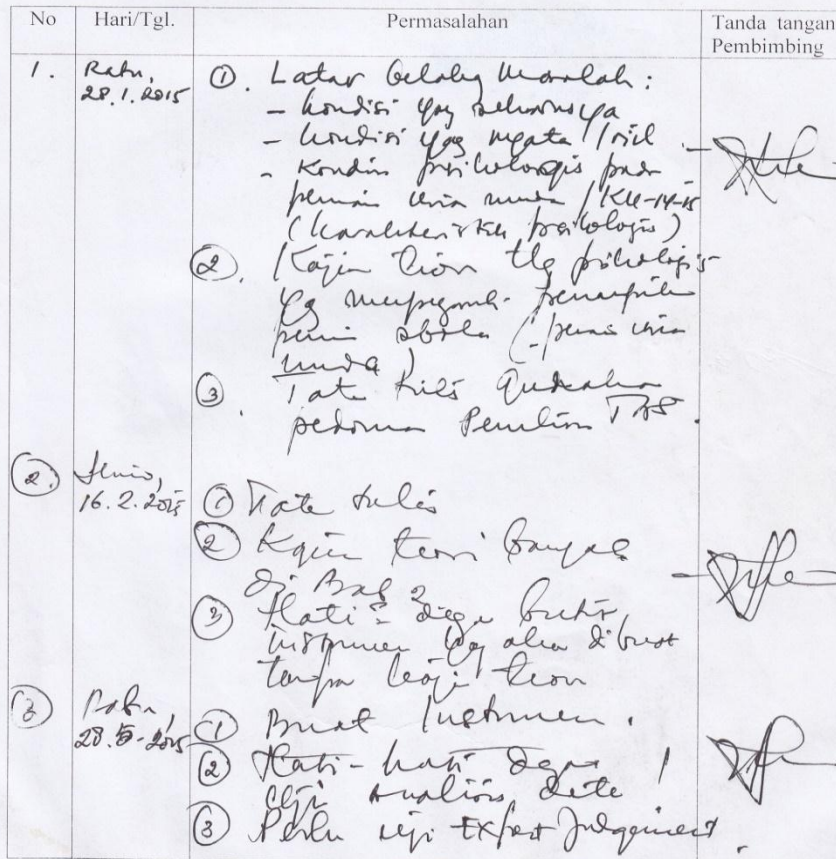 No Hari/Tgl. Permasalahan Tanda tangan
Pembimbing
1. Rabu, 28.1.2015 ①. Latar belakang Masalah:
- kondisi yang seharusnya
- kondisi yang nyata / riil
- Kondisi psikologis pada
pemain usia muda / KU-14-15
(karakteristik psikologis)
②. Kajian teori ttg psikologis
yg mempengaruhi penampilan
pemain (pemain usia
muda)
③. Tata tulis gunakan
pedoman Penulisan TAS.
②. Senin, 16.2.2015
① Tata tulis
② Kajian teori banyak
di Bab 2
③ Hati² dengan butir
instrumen yg akan dibuat
tanpa kaji teori
③ Rabu, 28.5-2015 ① Buat Instrumen.
② Hati-hati dengan !
uji analisis data
③ Perlu uji Expert Judgement.